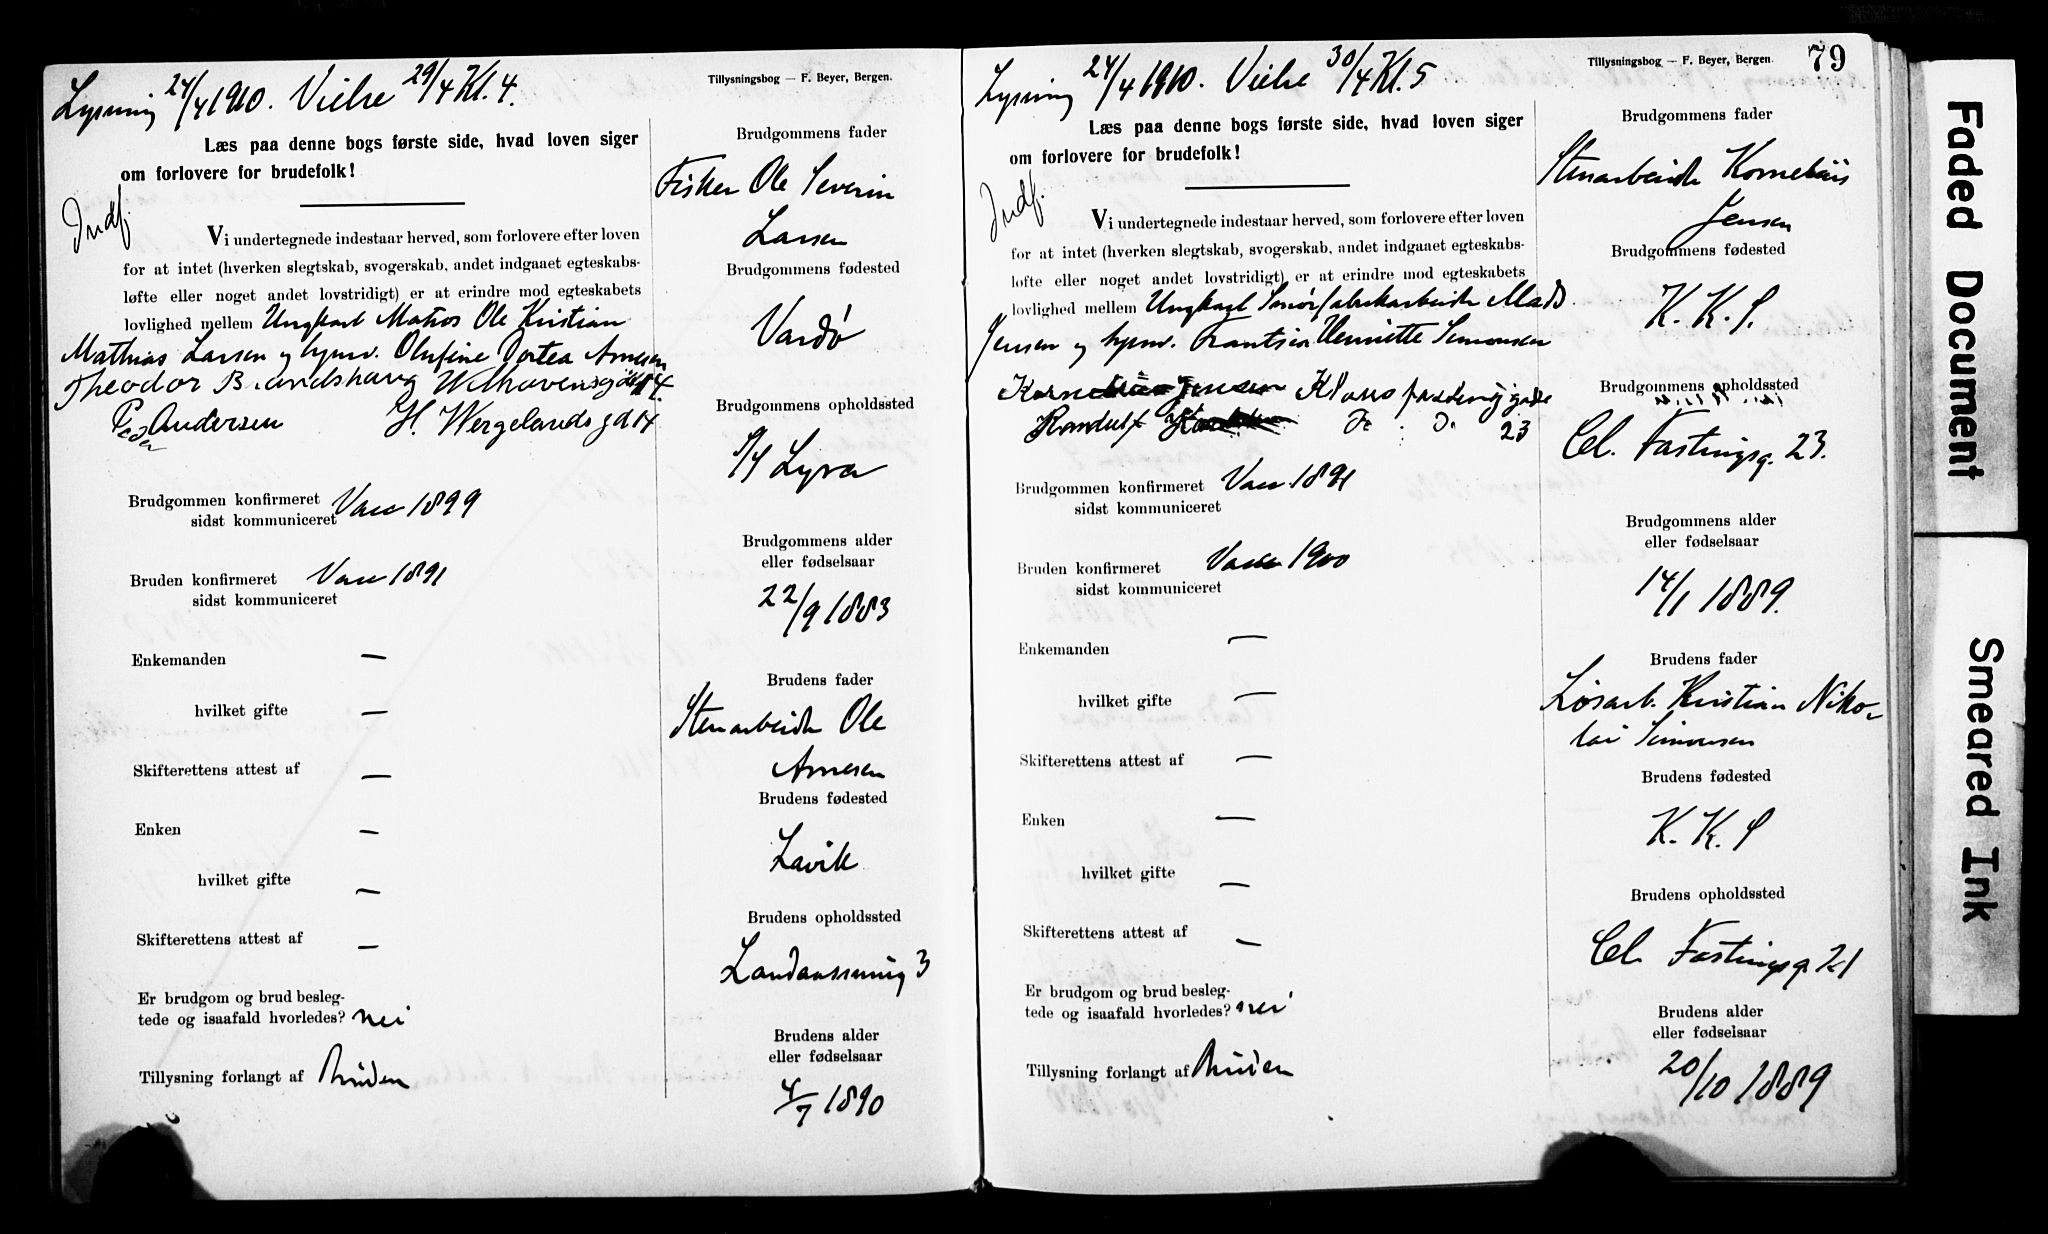 Lysning 24/4 1910. Vielse 29/4 Kl. 4.
Tillysningsbog — F. Beyer, Bergen.
Læs paa denne bogs første side, hvad loven siger
om forlovere for brudefolk!
Indf.
Vi undertegnede indestaar herved, som forlovere efter loven
for at intet (hverken slegtskab, svogerskab, andet indgaaet egteskabs-
løfte eller noget andet lovstridigt) er at erindre mod egteskabets
lovlighed mellem Ungkarl Matros Ole Kristian
Mathias Larsen og hpmv. Olufine Dortea Arnesen
Theodor Welhavensgd 14.
Peder Andersen H. Wergelandsgd 14
Brudgommen konfirmeret Vaar 1899
sidst kommuniceret
Bruden konfirmeret Vaar 1891
sidst kommuniceret
Enkemanden —
hvilket gifte —
Skifterettens attest af —
Enken —
hvilket gifte —
Skifterettens attest af —
Er brudgom og brud besleg-
tede og isaafald hvorledes? nei
Tillysning forlangt af Bruden
Brudgommens fader
Fisker Ole Severin
Larsen
Brudgommens fødested
Vardø
Brudgommens opholdssted
Lyra
Brudgommens alder
eller fødselsaar
22/9 1883
Brudens fader
Stenarbeider Ole
Arnesen
Brudens fødested
Lavik
Brudens opholdssted
Landaassving 3
Brudens alder
eller fødselsaar
4/7 1890
Lysning 24/4 1910. Vielse 30/4 Kl. 5
Tillysningsbog — F. Beyer, Bergen.
79
Læs paa denne bogs første side, hvad loven siger
om forlovere for brudefolk!
Indf.
Vi undertegnede indestaar herved, som forlovere efter loven
for at intet (hverken slegtskab, svogerskab, andet indgaaet egteskabs-
løfte eller noget andet lovstridigt) er at erindre mod egteskabets
lovlighed mellem Ungkarl Smørfabrikarbeider Mads
Jensen og hpmv. Frantsia Henriette Simonsen
Kornelius Jensen Klaus
Randulf 23
Brudgommen konfirmeret Vaar 1891
sidst kommuniceret
Bruden konfirmeret Vaar 1900
sidst kommuniceret
Enkemanden —
hvilket gifte —
Skifterettens attest af —
Enken —
hvilket gifte —
Skifterettens attest af —
Er brudgom og brud besleg-
tede og isaafald hvorledes? nei
Tillysning forlangt af Bruden
Brudgommens fader
Stenarbeider Kornelius
Jensen
Brudgommens fødested
K. K. S.
Brudgommens opholdssted
Cl. Fastingsg. 23.
Brudgommens alder
eller fødselsaar
14/1 1889.
Brudens fader
Løsarb. Kristian Niko-
lai Simonsen
Brudens fødested
K. K. S
Brudens opholdssted
Cl. Fastingsg 21
Brudens alder
eller fødselsaar
20/10 1889
Faded Document
Smeared Ink